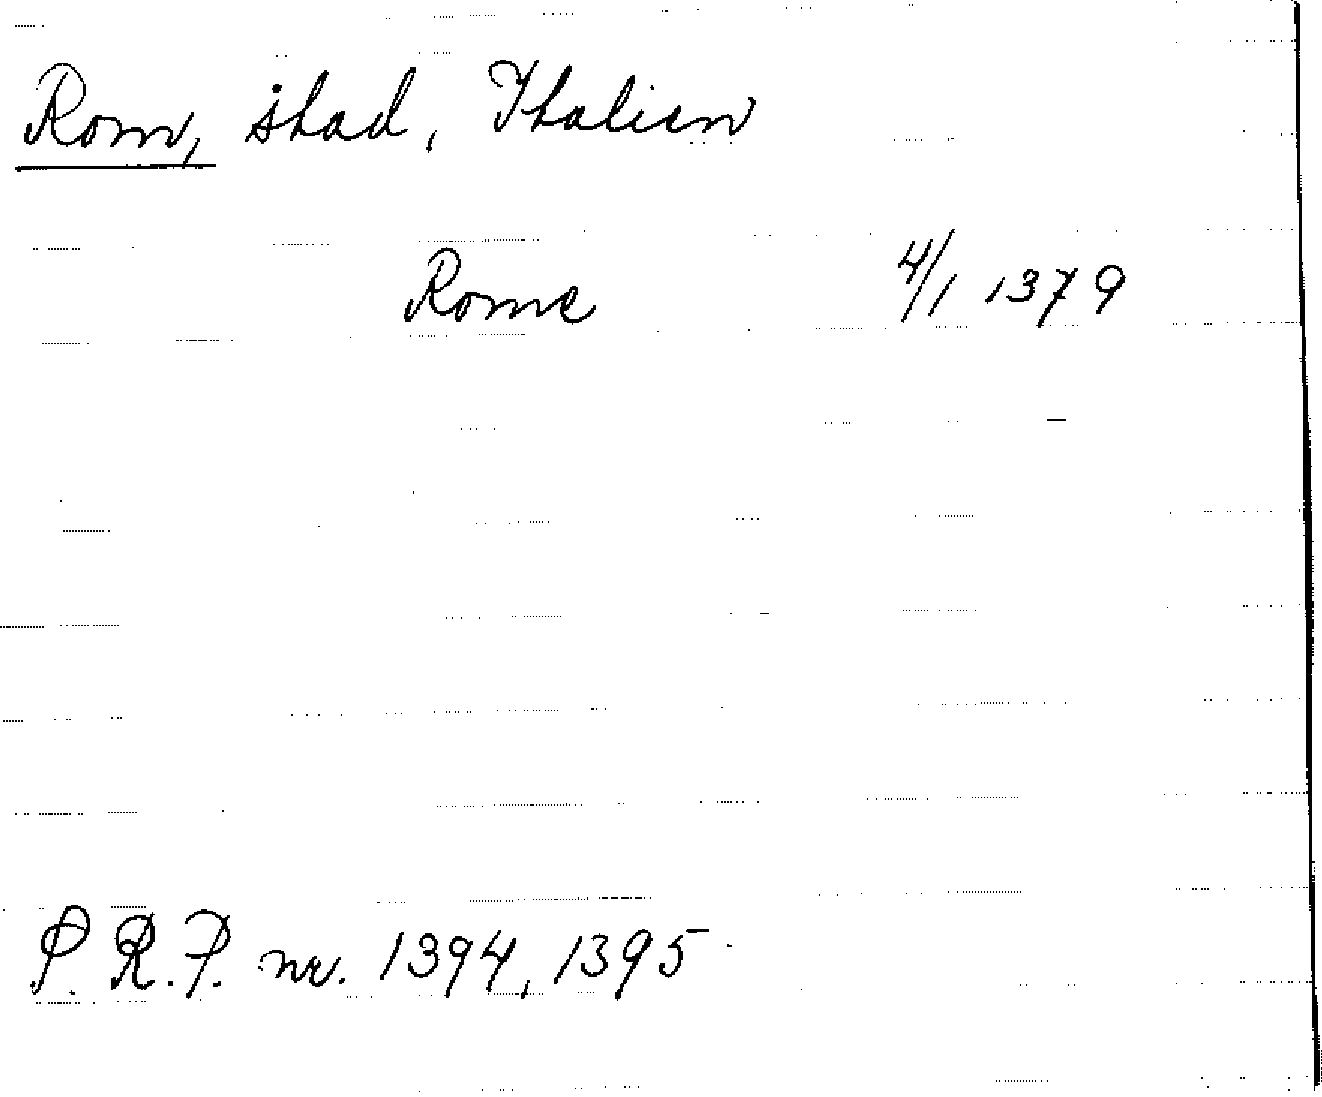 Rom, stad, Italien
Rome 4/1 1379
P. R. P. nr. 1394, 1395